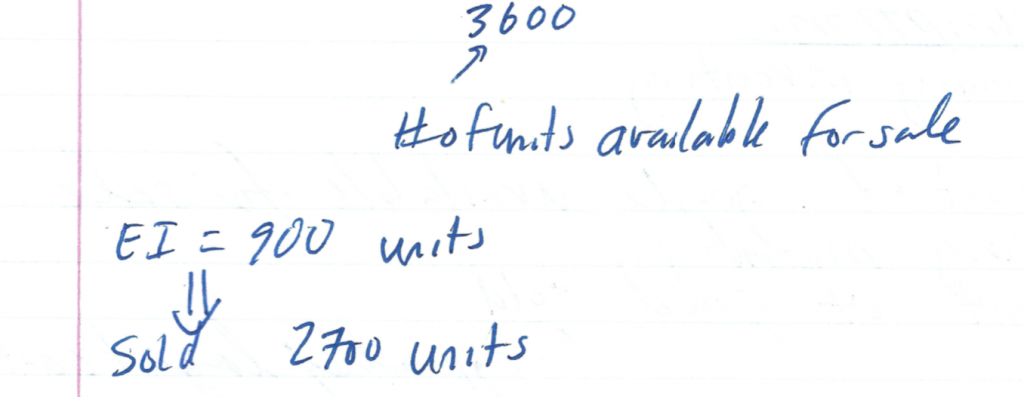 3600
# of units available for sale
EI = 900 units
Sold 2700 units